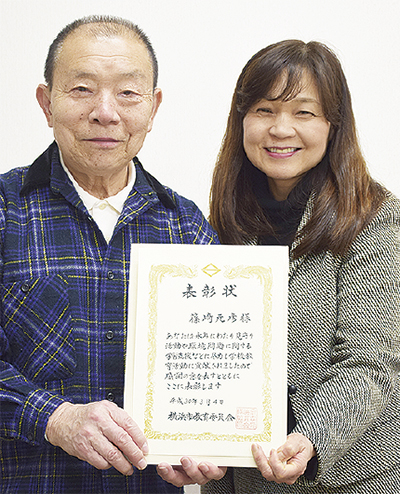 表彰状
篠﨑元彦様
あなたは永年にわたり見守り
活動や環境問題に関する
学習支援などに努め学校教
育活動に貢献されましたので
感謝の意を表すとともに
ここに表彰します
平成30年2月4日
横浜市教育委員会